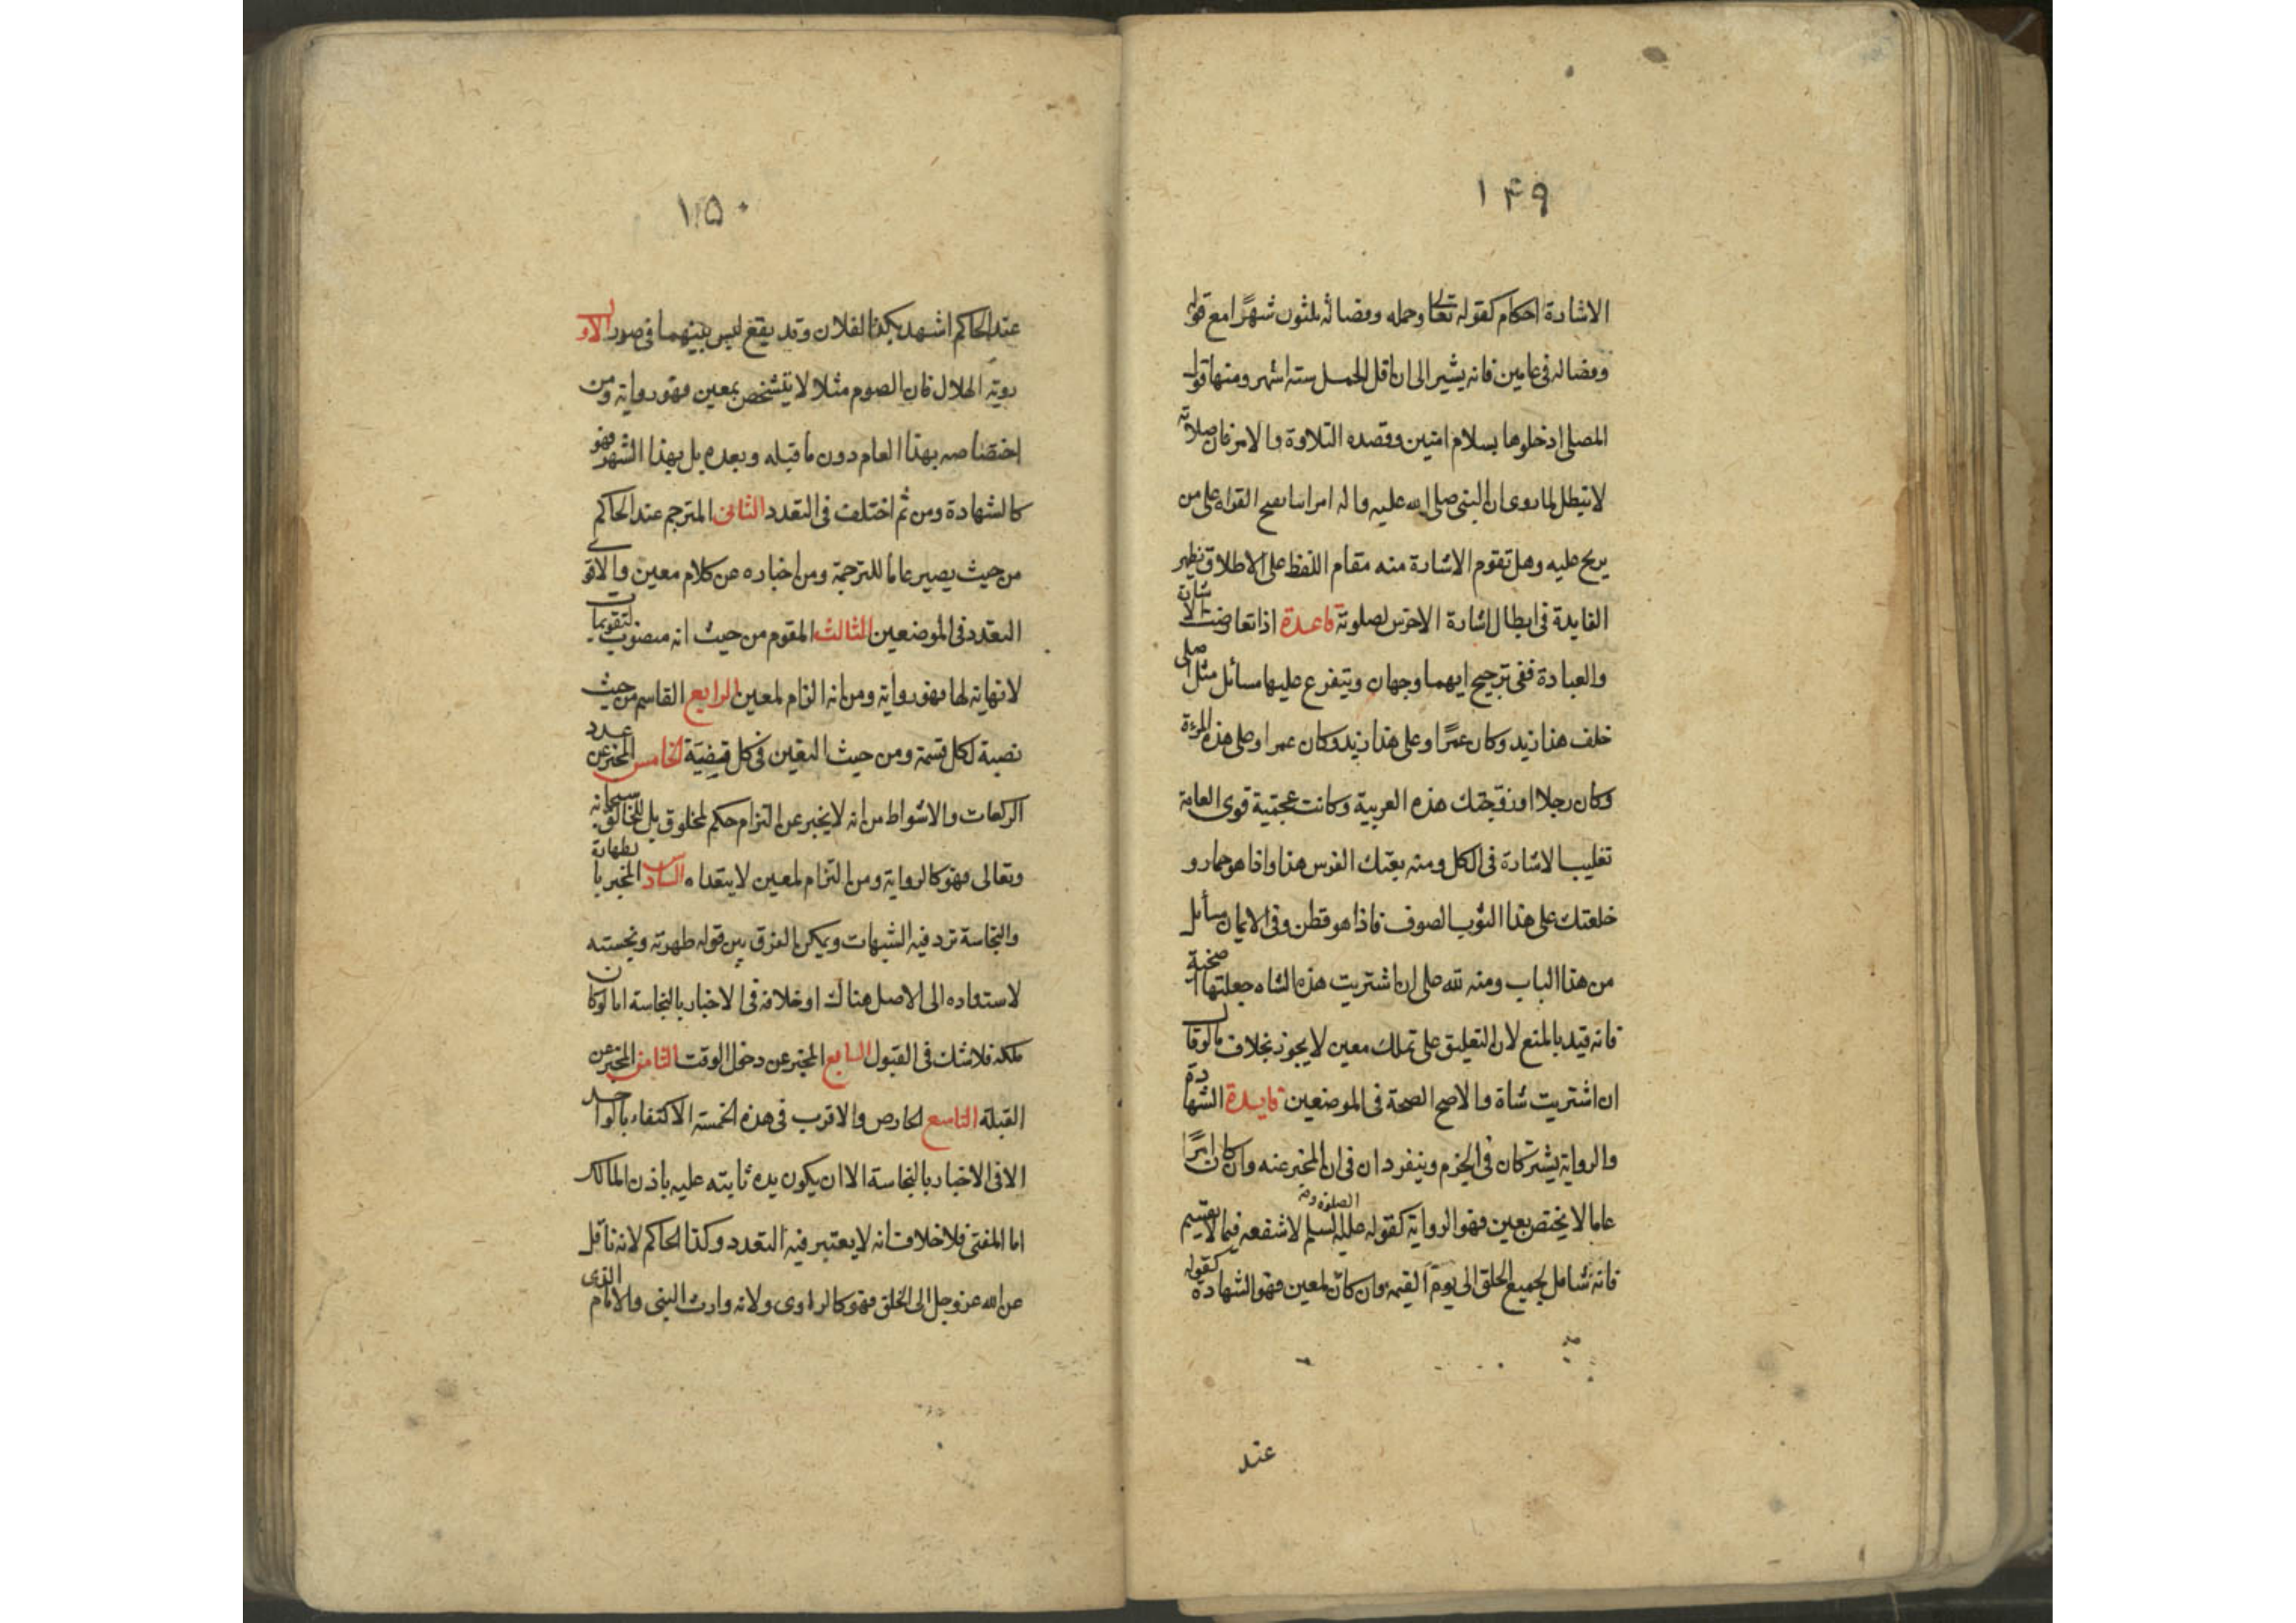 ١٤٩
الاشارة احكام كقوله تعالى وحمله وفصاله ثلثون شهرًا مع قوله
وفصاله في عامين فانه يشير الى ان اقل الحمل ستة اشهر ومنها قول
المصلي ادخلوها بسلام امنين وقصده التلاوة والامر فان صلاته
لا تبطل لما روى ان النبي صلى الله عليه واله امر القراة على من
عليه وهل تقوم الاشارة منه مقام اللفظ على الاطلاق تظهر
الفايدة في ابطال اشارة الاخرس لصلوته قاعدة اذا تعارضت الاشارة
والعبادة ففي ترجيح ايهما وجهان ويتفرع عليها مسائل مثل اصلي
خلف هذا زيد وكان عمرًا وعلى هذا زيد وكان عمرا وصلى هذه المرءة
وكان رجلا او زوجتك هذه العربية وكانت عجمية قوى العامة
تغليب الاشارة في الكل ومنه بعتك الفرس هذا واذا هو حمار و
خلعتك على هذا الثوب الصوف فاذا هو قطن وفي الايمان مسأئل
من هذا الباب ومنه لله على ان اشتريت هذه الشاه جعلتها اضحية
فانه قيد بالمنع لان التعليق على تملك معين لا يجوز بخلاف ما لو قال
ان اشتريت شاة والاصح الصحة في الموضعين فايدة الشهادة
والرواية يشتركان في الجزم وينفردان في ان المخبر عنه وان كان امرًا
عاما لا يختص بمعين فهو الرواية كقوله عليه الصلوة والسلم لا شفعه فيما لا يقسم
فانه شامل لجميع الخلق الى يوم القيمه وان كان لمعين فهو الشهادة كقوله
عند
١٥٠
عند الحاكم اشهد بكذا لفلان وقد يقع لبس بينهما في صور الاول
روية الهلال فان الصوم مثلا لا يتشخص بمعين فهو رواية ومن
اختصاصه بهذا العام دون ما قبله وبعده بل بهذا الشهر فهو
كالشهادة ومن ثم اختلف في التعدد الثاني المترجم عند الحاكم
من حيث يصير عاما للترجمة ومن اخباره عن كلام معين والاقوى
التعدد في الموضعين الثالث المقوم من حيث انه منصوب لتقويمات
لا نهاية لها فهو رواية ومن انه الزام لمعين الرابع القاسم من حيث
نصبه لكل قسمة ومن حيث التعين في كل قضية الخامس المخبر عن عدد
الركعات والاشواط من انه لا يخبر عن التزام حكم لمخلوق بل للخالق سبحانه
وتعالى فهو كالرواية ومن التزام لمعين لا يتعداه السادس المخبر بالطهارة
والنجاسة ترد فيه الشبهات ويمكن الفرق بين قوله طهرته ونجسته
لاستناده الى الاصل هناك او خلافه في الاخبار بالنجاسة اما لو كان
ملكه فلا شك في القبول السابع المخبر عن دخول الوقت الثامن المخبر عن
القبلة التاسع الخارص والاقرب في هذه الخمسة الاكتفاء بالواحد
الا في الاخبار بالنجاسة الا ان يكون يده ثابته عليه باذن المالك
اما المفتي فلا خلاف انه لا يعتبر فيه التعدد وكذا الحاكم لانه ناقل
عن الله عز وجل الى الخلق فهو كالراوى ولانه وارث النبي والامام الذى